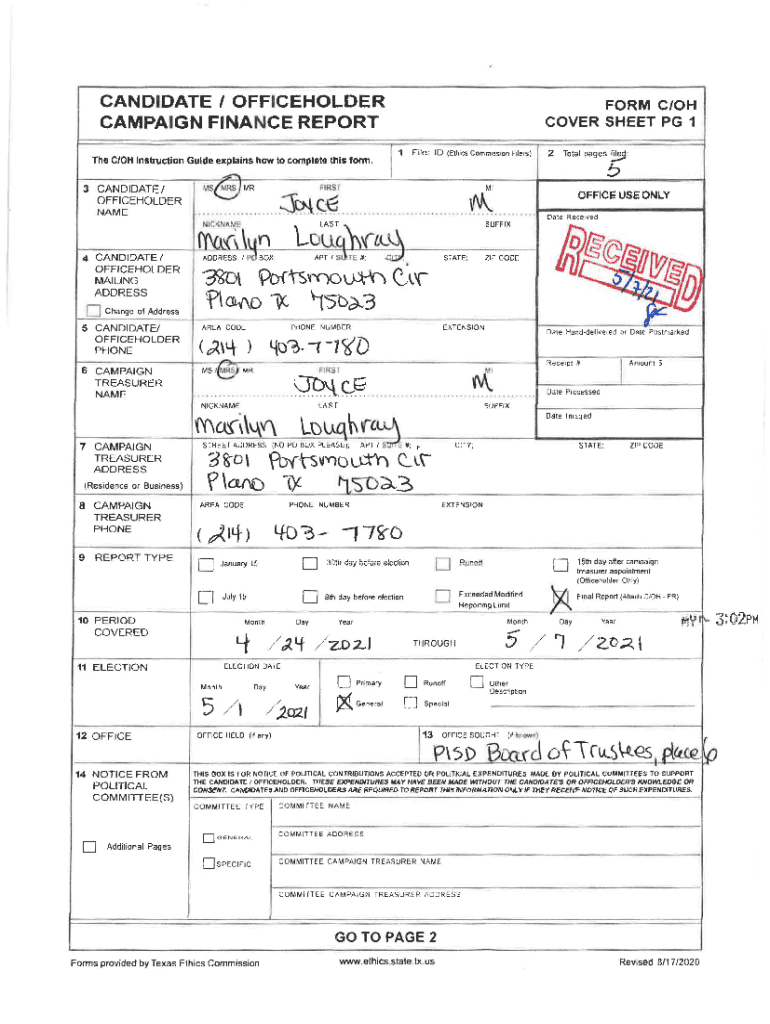 CANDIDATE / OFFICEHOLDER
CAMPAIGN FINANCE REPORT
FORM C/OH
COVER SHEET PG 1
The C/OH Instruction Guide explains how to complete this form.
1 Filer ID (Ethics Commission Filers)
2 Total pages filed:
5
3 CANDIDATE / OFFICEHOLDER NAME
MS / MRS / MR FIRST MI
JOYCE M
NICKNAME LAST SUFFIX
Marilyn Loughray
OFFICE USE ONLY
Date Received
RECEIVED
5/7/21
4 CANDIDATE / OFFICEHOLDER MAILING ADDRESS
Change of Address
ADDRESS / PO BOX; APT / SUITE #; CITY; STATE; ZIP CODE
3801 Portsmouth Cir
Plano TX 75023
5 CANDIDATE/ OFFICEHOLDER PHONE
AREA CODE PHONE NUMBER EXTENSION
(214) 403-7780
Date Hand-delivered or Date Postmarked
Receipt # Amount $
Date Processed
Date Imaged
6 CAMPAIGN TREASURER NAME
MS / MRS / MR FIRST MI
JOYCE M
NICKNAME LAST SUFFIX
Marilyn Loughray
7 CAMPAIGN TREASURER ADDRESS
(Residence or Business)
STREET ADDRESS (NO PO BOX PLEASE); APT / SUITE #; CITY; STATE; ZIP CODE
3801 Portsmouth Cir
Plano TX 75023
8 CAMPAIGN TREASURER PHONE
AREA CODE PHONE NUMBER EXTENSION
(214) 403-7780
9 REPORT TYPE
January 15 30th day before election Runoff 15th day after campaign treasurer appointment (Officeholder Only)
July 15 8th day before election Exceeded Modified Reporting Limit X Final Report (Attach C/OH - FR)
3:02PM
10 PERIOD COVERED
Month Day Year Month Day Year
4 / 24 / 2021 THROUGH 5 / 7 / 2021
11 ELECTION
ELECTION DATE ELECTION TYPE
Month Day Year
5 / 1 / 2021
Primary Runoff Other Description
X General Special
12 OFFICE
OFFICE HELD (if any)
13 OFFICE SOUGHT (if known)
PISD Board of Trustees, place 6
14 NOTICE FROM POLITICAL COMMITTEE(S)
Additional Pages
THIS BOX IS FOR NOTICE OF POLITICAL CONTRIBUTIONS ACCEPTED OR POLITICAL EXPENDITURES MADE BY POLITICAL COMMITTEES TO SUPPORT
THE CANDIDATE / OFFICEHOLDER. THESE EXPENDITURES MAY HAVE BEEN MADE WITHOUT THE CANDIDATE'S OR OFFICEHOLDER'S KNOWLEDGE OR
CONSENT. CANDIDATES AND OFFICEHOLDERS ARE REQUIRED TO REPORT THIS INFORMATION ONLY IF THEY RECEIVE NOTICE OF SUCH EXPENDITURES.
COMMITTEE TYPE
GENERAL
SPECIFIC
COMMITTEE NAME
COMMITTEE ADDRESS
COMMITTEE CAMPAIGN TREASURER NAME
COMMITTEE CAMPAIGN TREASURER ADDRESS
GO TO PAGE 2
Forms provided by Texas Ethics Commission www.ethics.state.tx.us Revised 8/17/2020